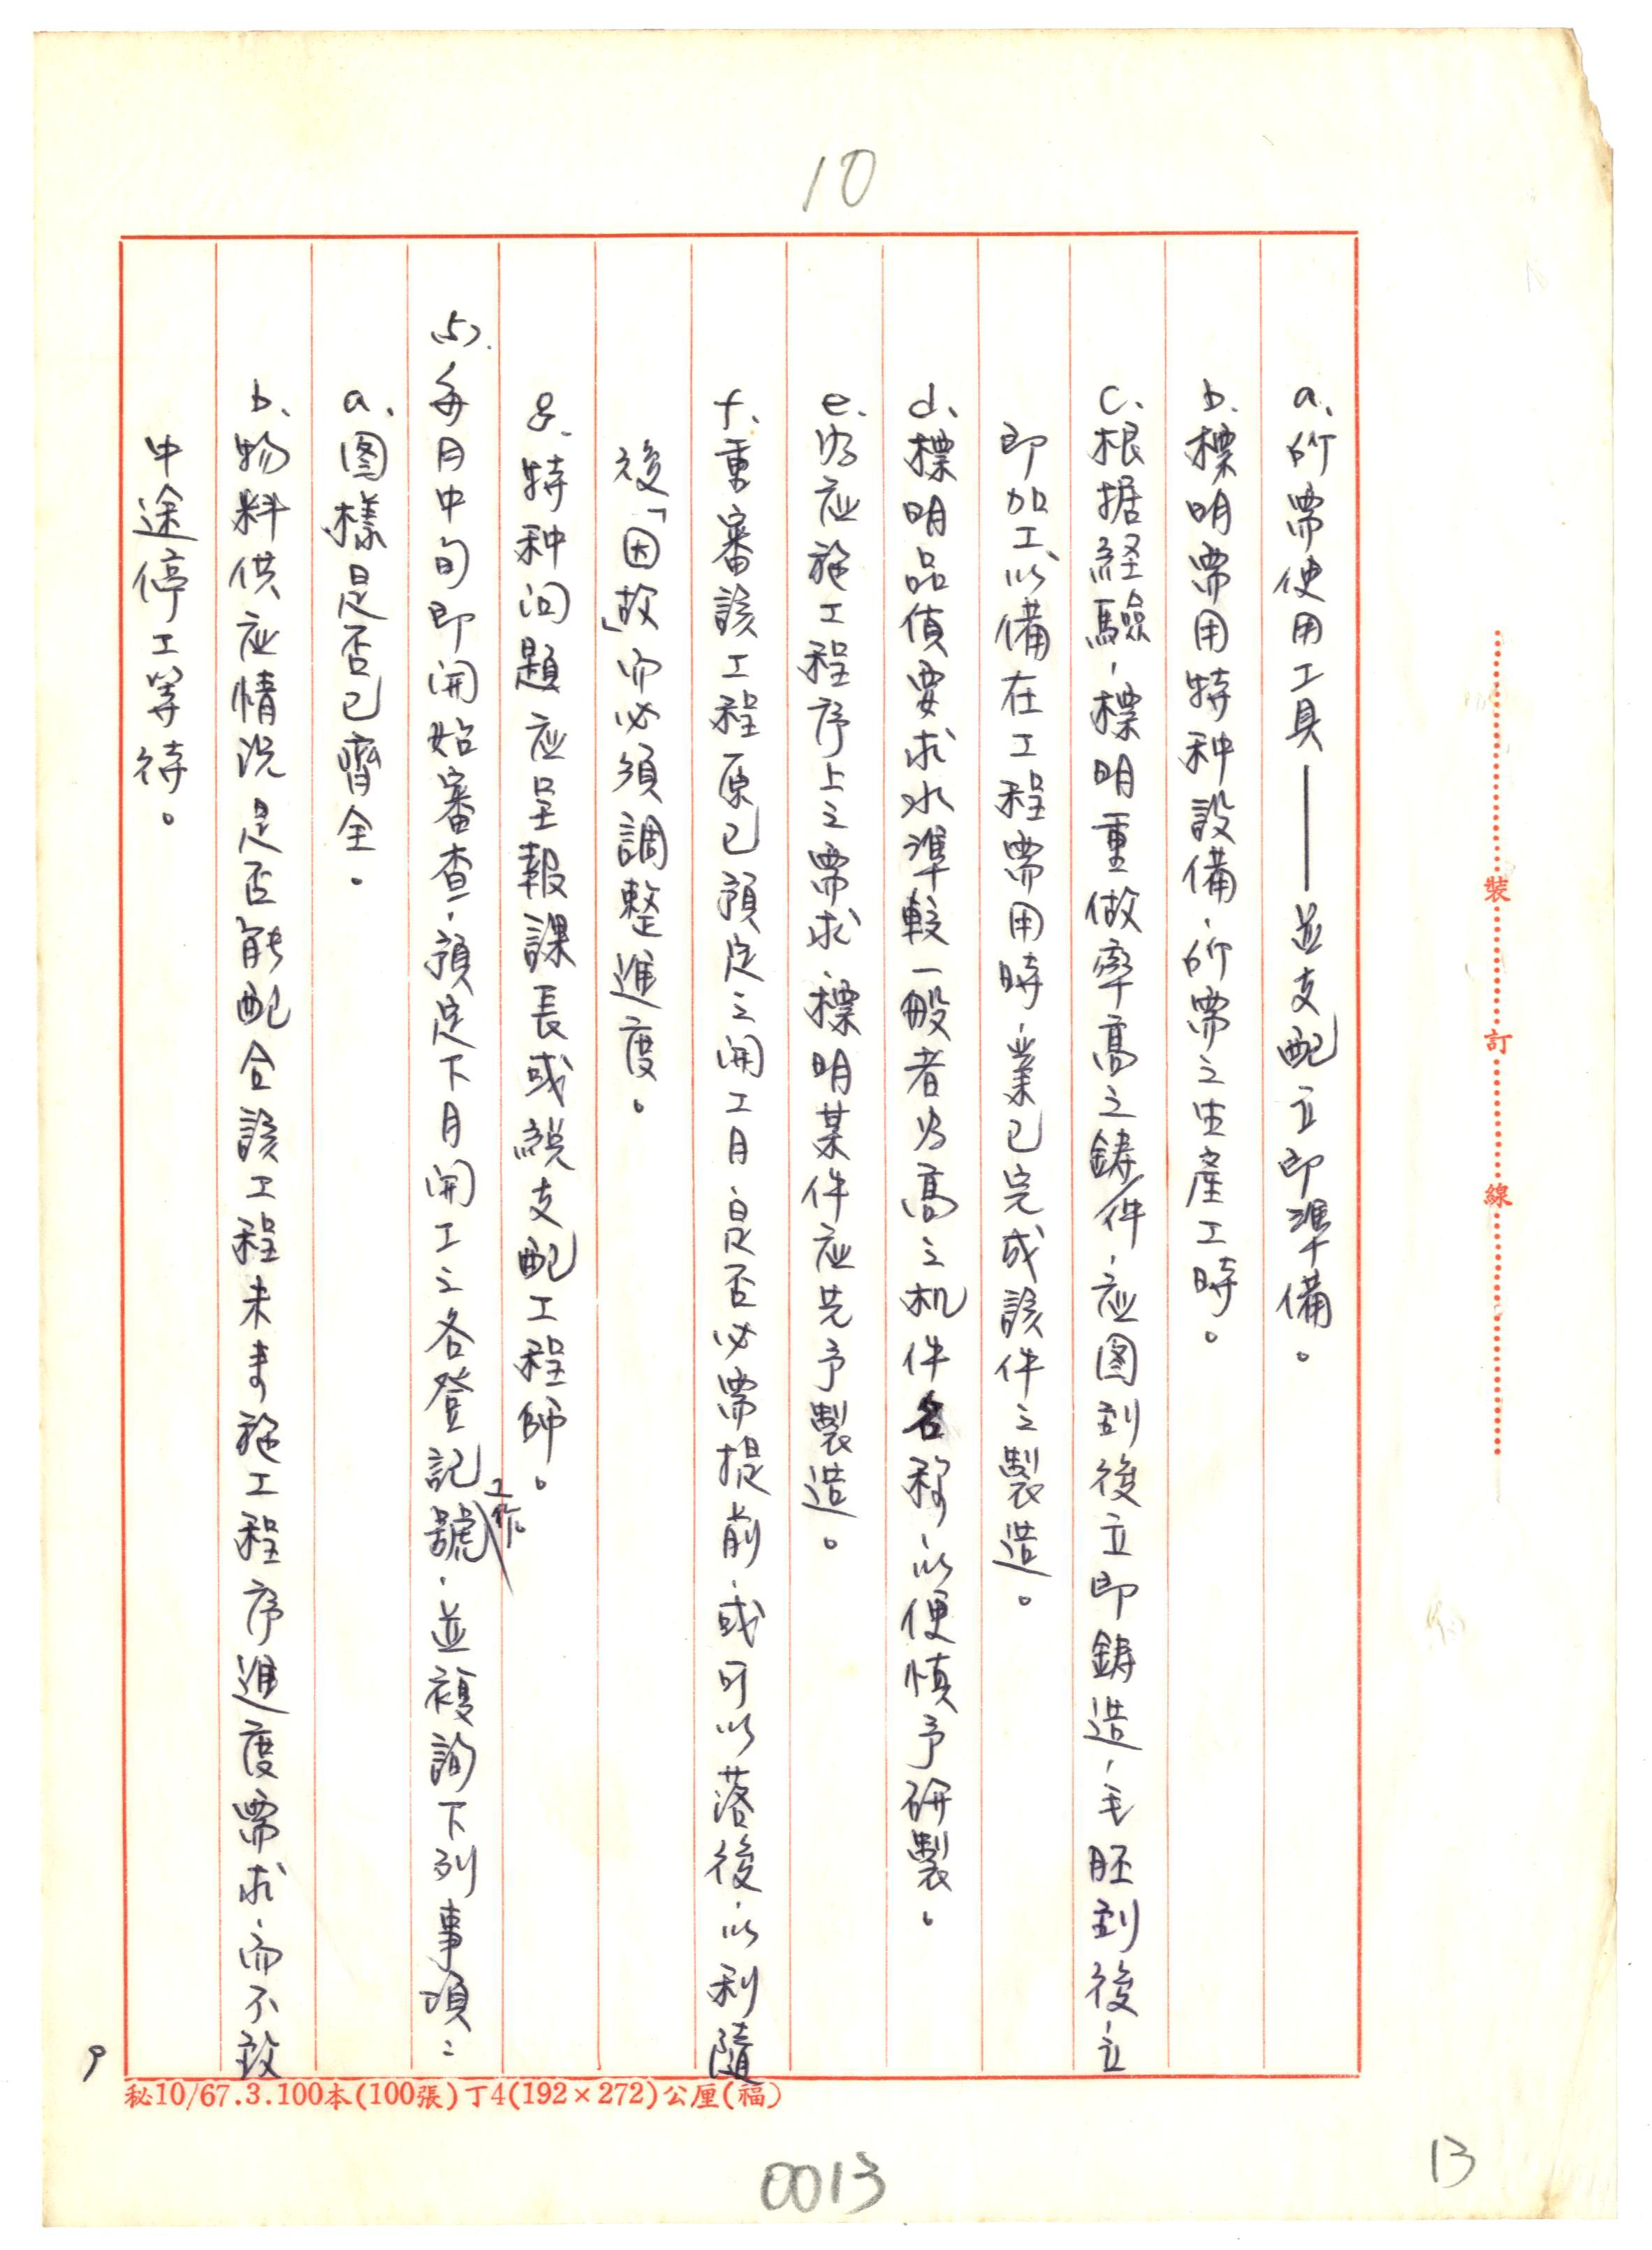 10
a、所需使用工具——並支配立即準備。
b、標明需用特种設備，所需之生產工時。
c、根据経驗，標明重做率高之鋳件，应図到後立即鋳造，毛胚到後，立
即加工，以備在工程需用時，業已完成該件之製造。
d、標明品質要求水準較一般者为高之机件名称，以便慎予研製。
e、为应施工程序上之需求，標明某件应先予製造。
f、重審該工程原已預定之開工月，是否必需提前，或可以落後，以利隨
後「因故」而必須調整進度。
g、特种问題应呈報課長或総支配工程師。
(5).每月中旬即開始審查，預定下月開工之各登記工作號，並複詢下列事項：
a、図樣是否已齊全。
b、物料供应情況是否能配合該工程未来施工程序進度需求，而不致
中途停工等待。
9
秘10/67.3.100本(100張)丁4(192×272)公厘(福)
0013
13
裝訂線